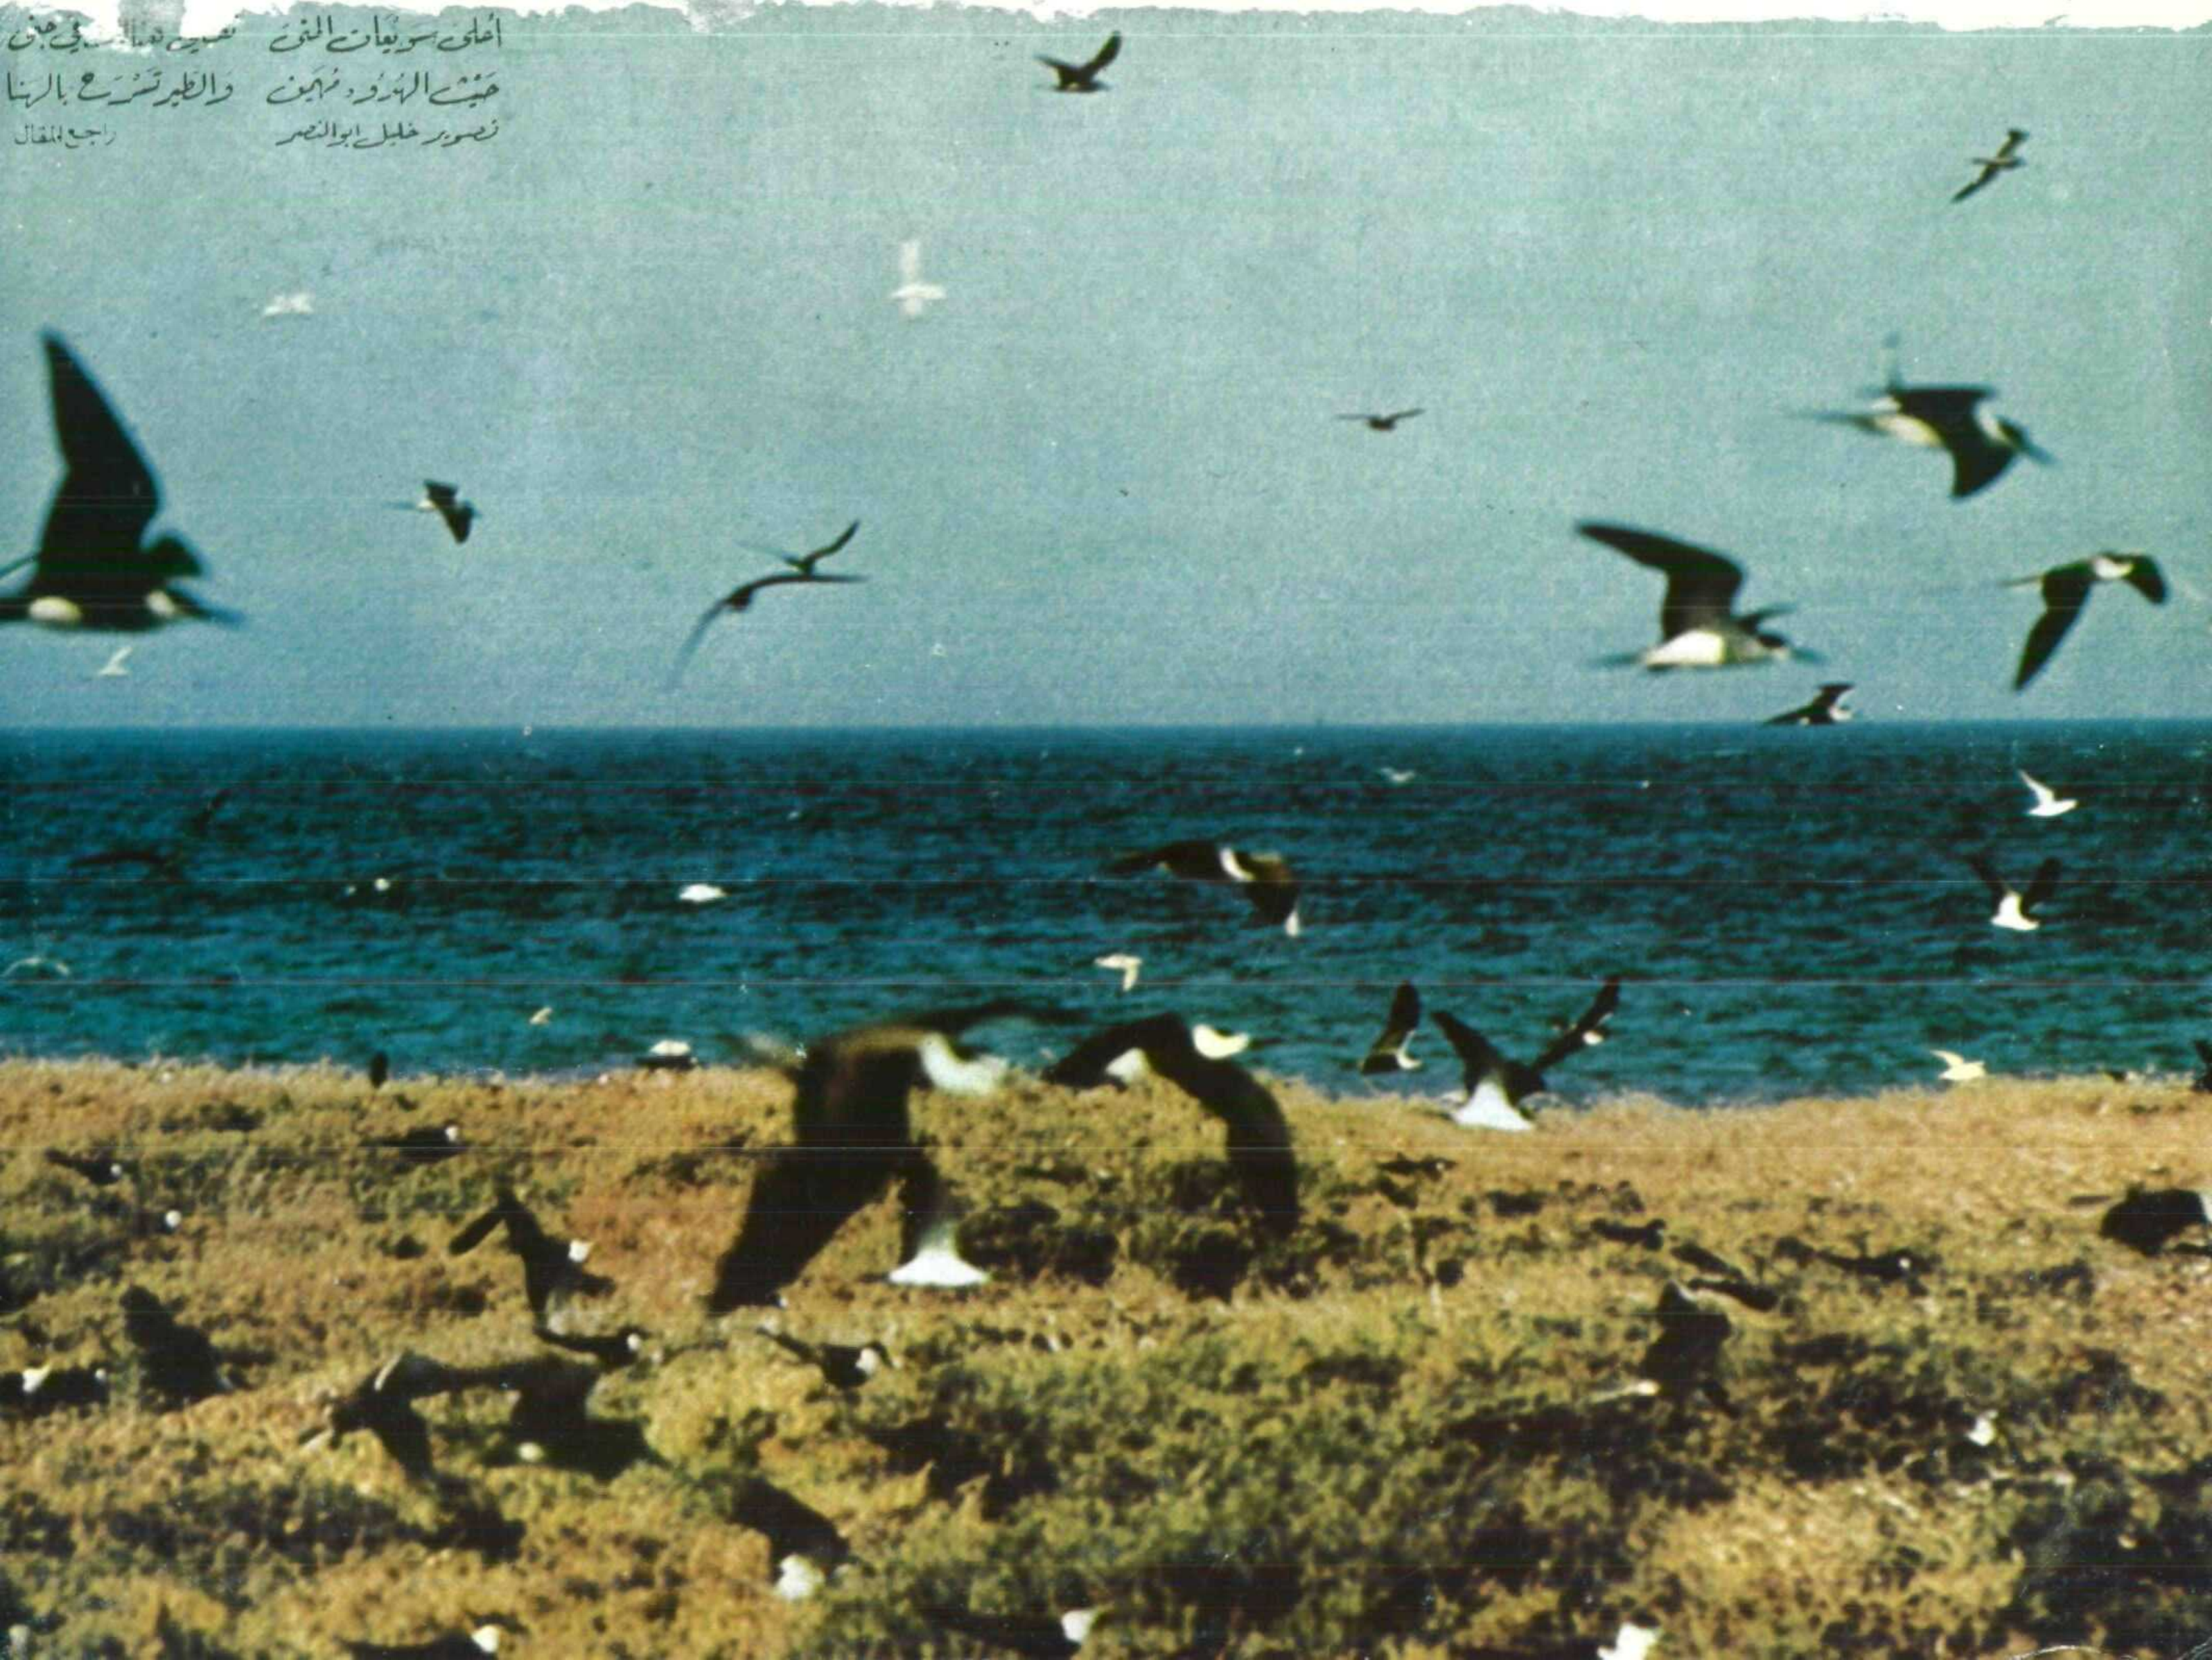 أحلى سويعات المنى تمضي في جنى
حيث الهدوء مهيمن والطير تسرح بالهنا
تصوير خليل ابو النصر راجع المقال